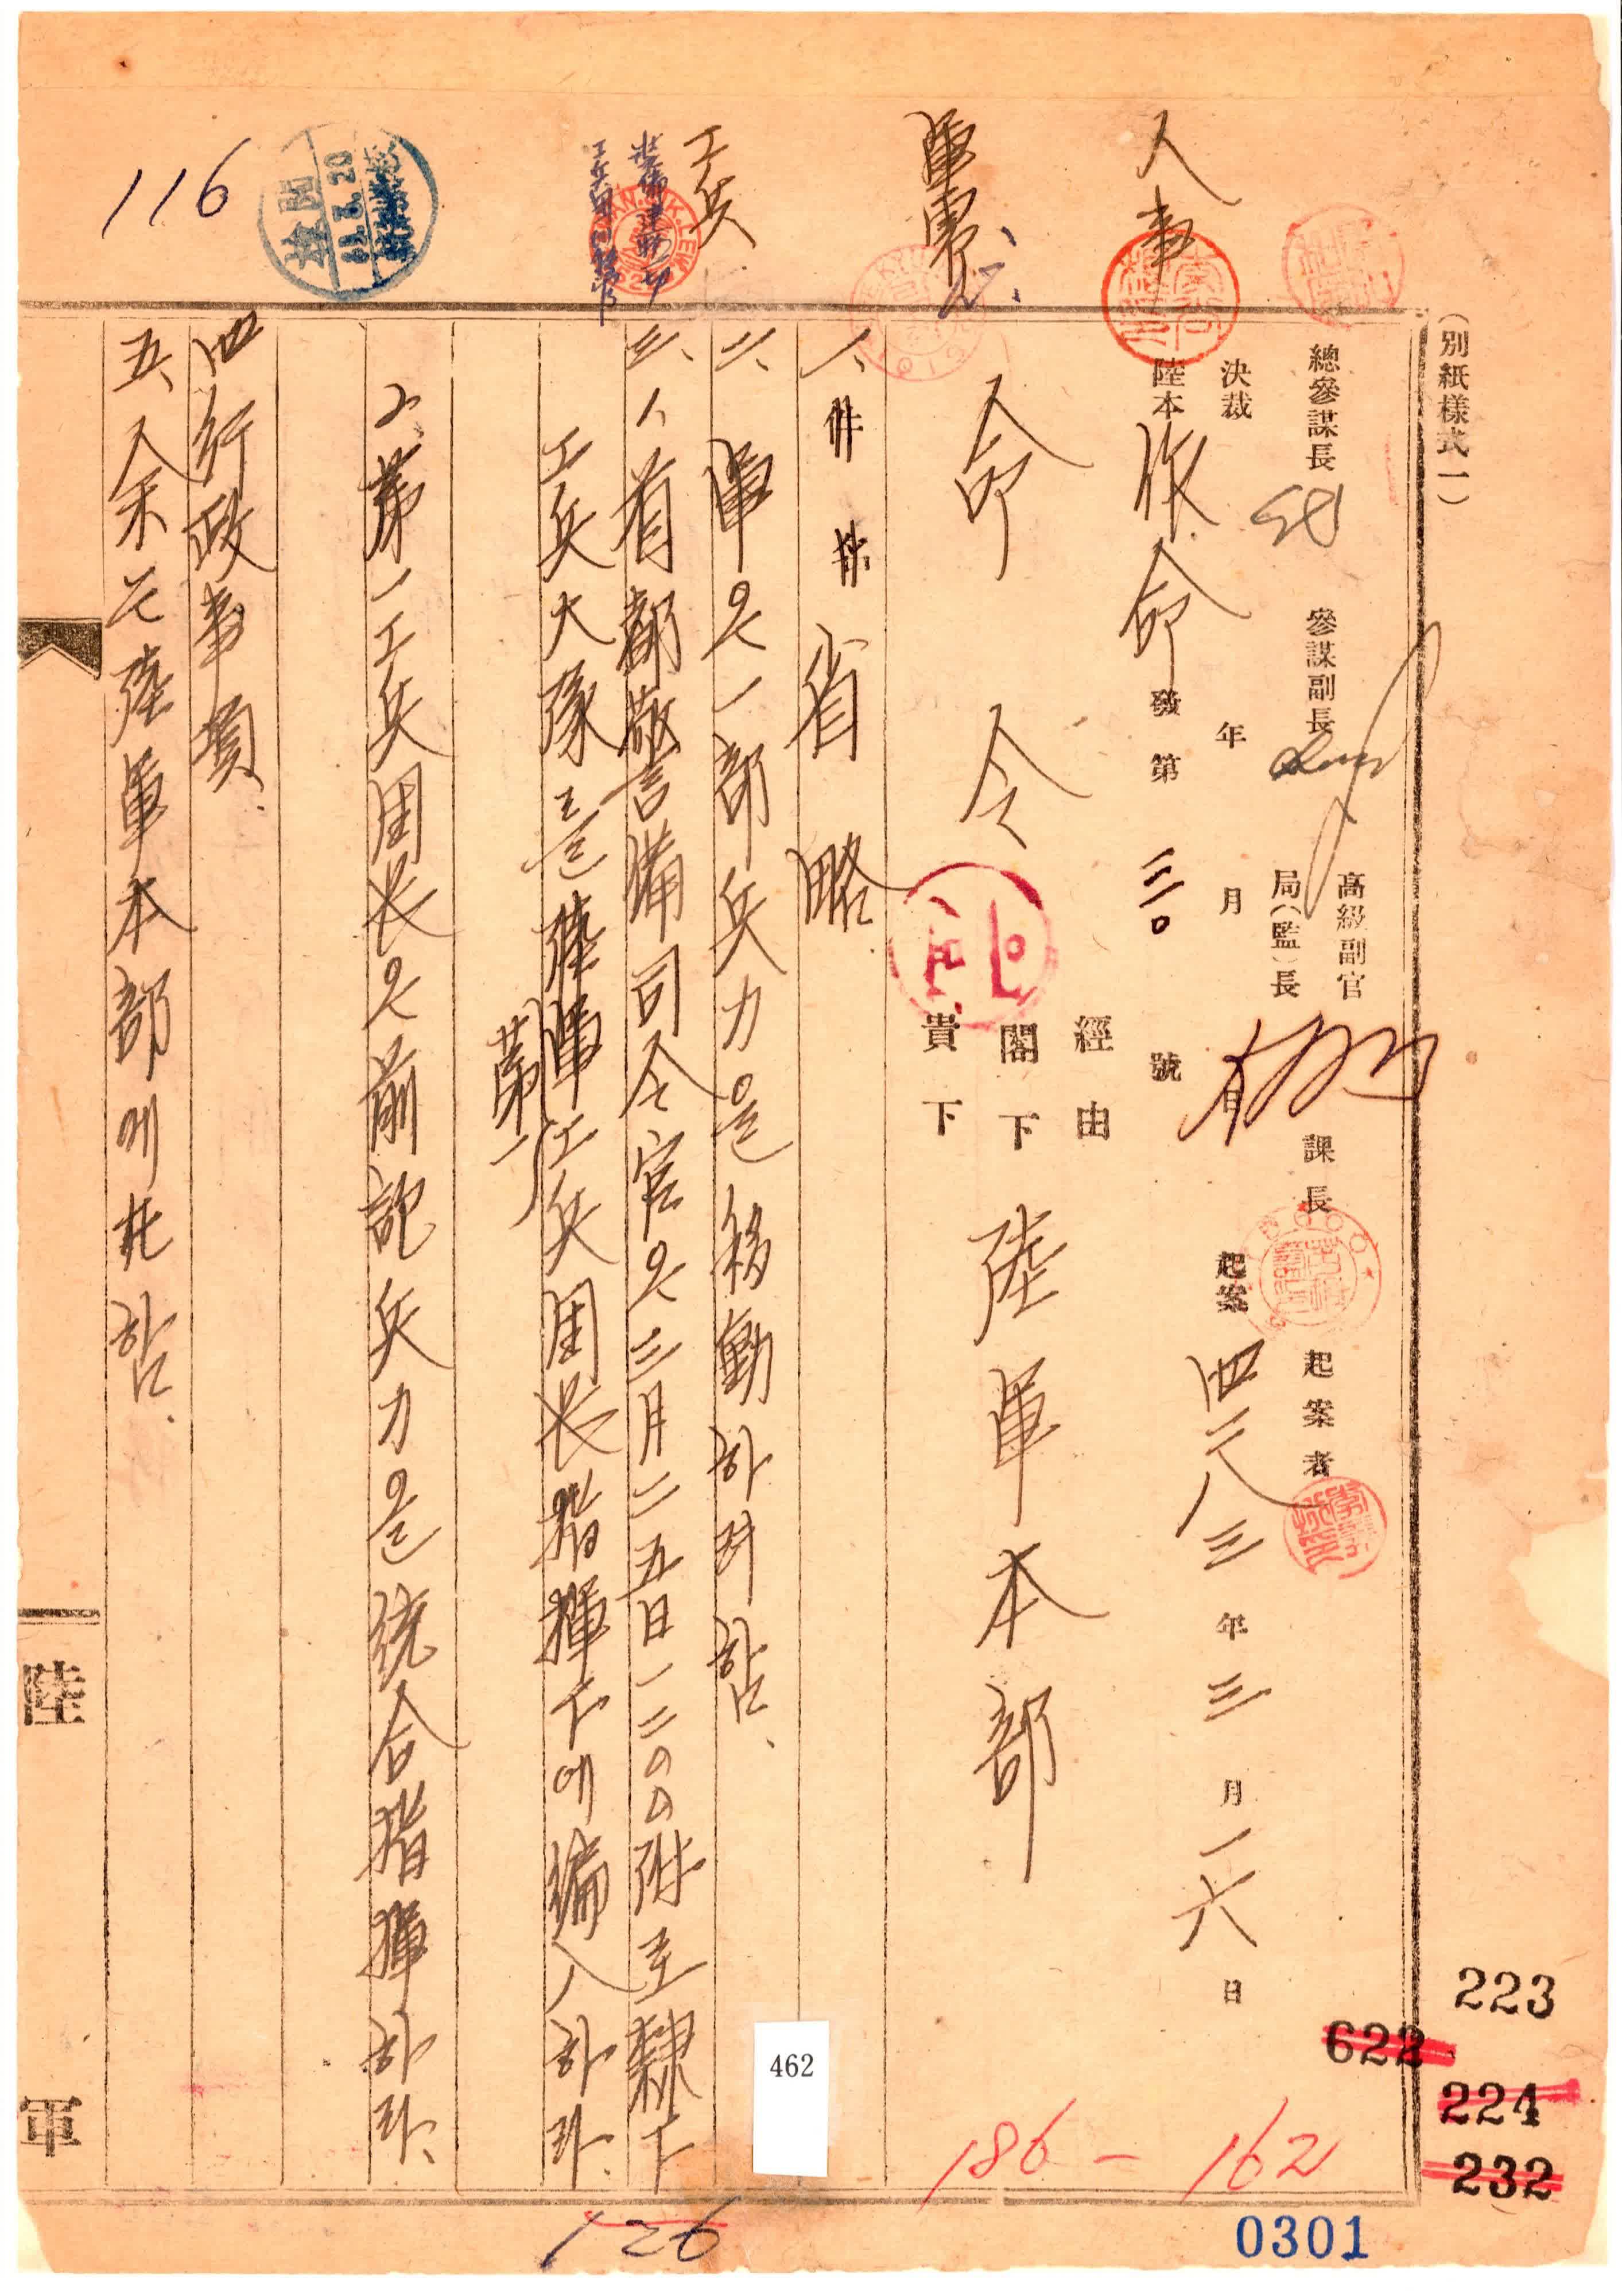 (別紙樣式一)
總參謀長 參謀副長 高級副官 局(監)長 課長 起案者
決裁 年 月 日 起案 四二八三年 三月 一六日
陸本 作命 發第 三〇 號
人事
軍需
工兵
經由
閣下
貴下
命令
陸軍本部
一、省略
二、軍은 一部兵力을 移動하려함、
三、1、首都警備司令官은 三月二五日一二〇〇附로 隸下
工兵大隊를 第一工兵团长 指揮下에 編入하라.
2、第一工兵团长은 前記兵力을 統合指揮하라、
四、行政事項.
五、余는 陸軍本部에 在함.
陸軍
116
462
223
622
224
232
186-162
126
0301